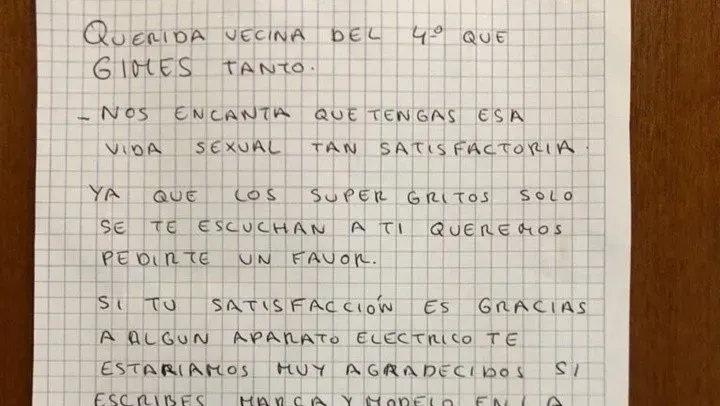 QUERIDA VECINA DEL 4º QUE
GIMES TANTO.
- NOS ENCANTA QUE TENGAS ESA
VIDA SEXUAL TAN SATISFACTORIA.
YA QUE LOS SUPER GRITOS SOLO
SE TE ESCUCHAN A TI QUEREMOS
PEDIRTE UN FAVOR.
SI TU SATISFACCIÓN ES GRACIAS
A ALGUN APARATO ELECTRICO TE
ESTARIAMOS MUY AGRADECIDOS SI
ESCRIBES MARCA Y MODELO EN LA